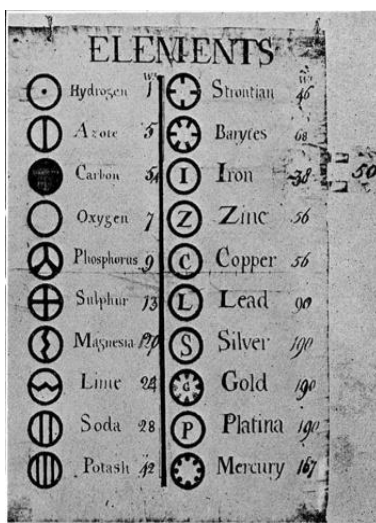 ELEMENTS
Wt
Hydrogen 1
Azote 5
Carbon 54
Oxygen 7
Phosphorus 9
Sulphur 13
Magnesia
Lime 24
Soda 28
Potash 42
Wt
Strontian 46
Barytes 68
I Iron 38 50
Z Zinc 56
C Copper 56
L Lead 90
S Silver 190
G Gold 190
P Platina 190
Mercury 167